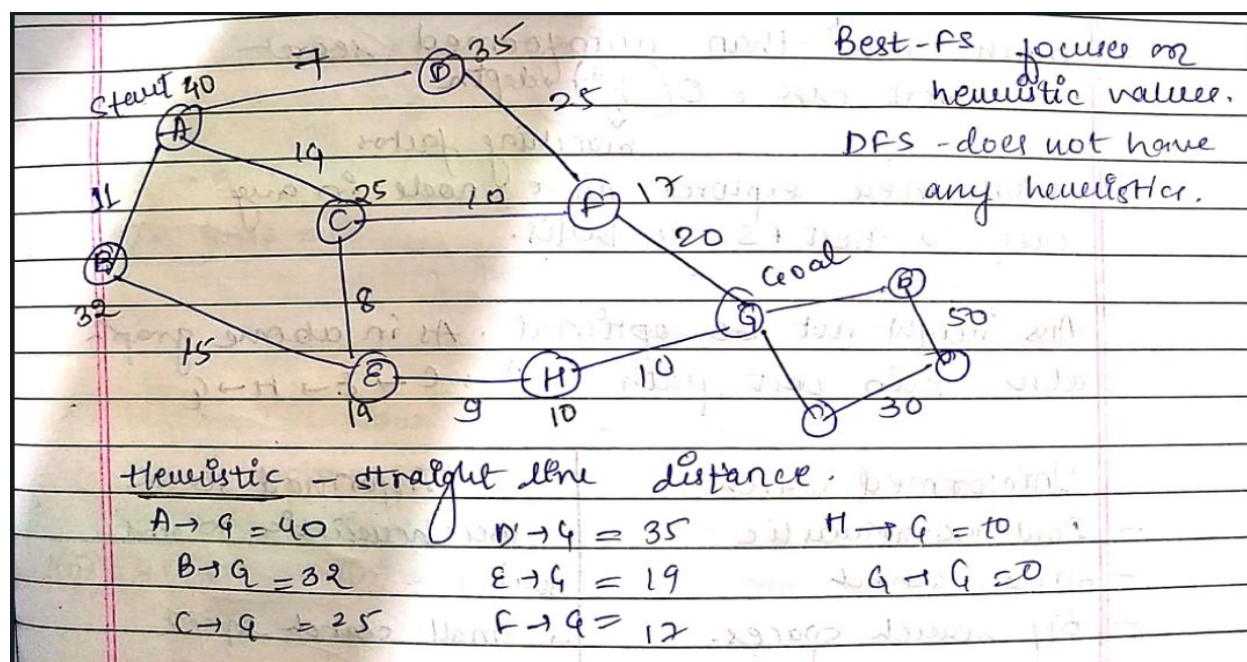 Best-FS focuses on
heuristic values.
DFS - does not have
any heuristics.
Start 40
A
7
D
35
25
14
11
25
C
10
F
17
20
Goal
B
32
8
G
B
50
15
E
19
9
H
10
10
30
Heuristic - straight line distance.
A → G = 40 D → G = 35 H → G = 10
B → G = 32 E → G = 19 G → G = 0
C → G = 25 F → G = 17